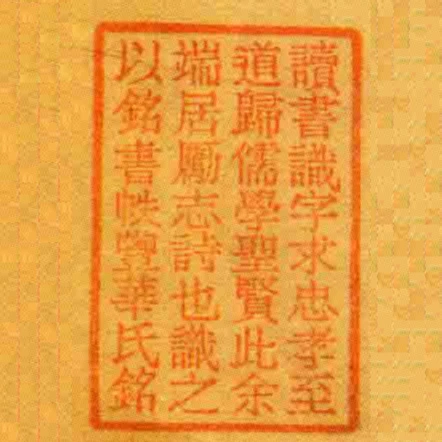 讀書識字求忠孝至
道歸儒學聖賢此余
端居勵志詩也識之
以銘書帙豐華氏銘